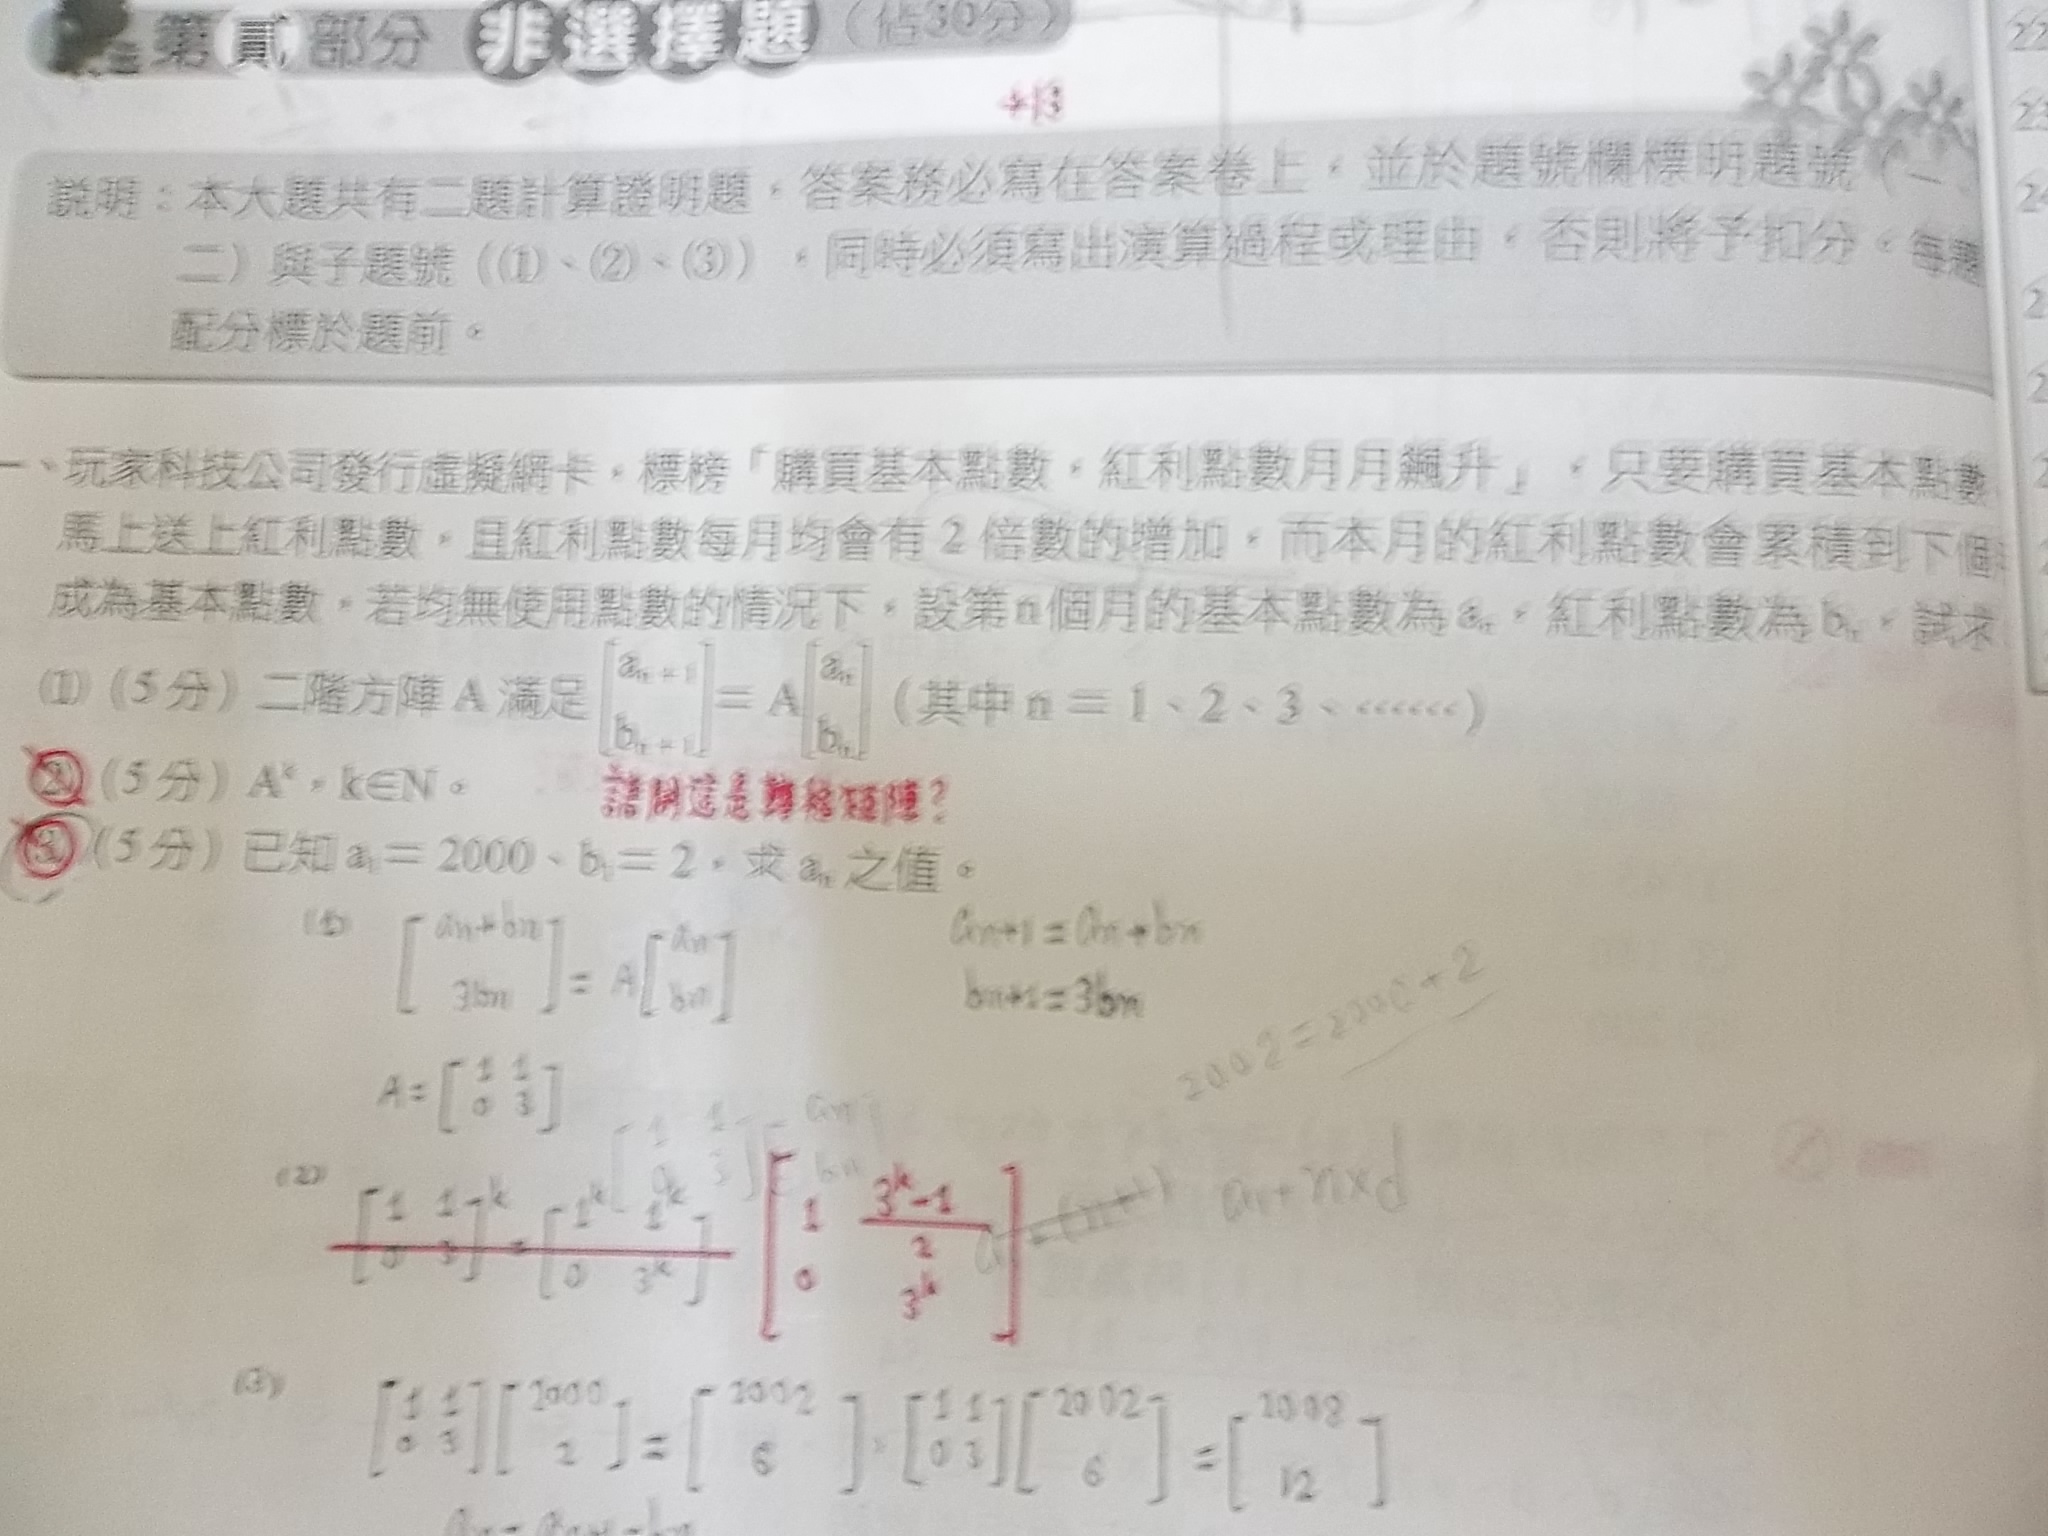 第貳部分 非選擇題（佔30分）
+13
說明：本大題共有二題計算證明題，答案務必寫在答案卷上，並於題號欄標明題號（一、
二）與子題號（(1)、(2)、(3)），同時必須寫出演算過程或理由，否則將予扣分。每題
配分標於題前。
一、玩家科技公司發行虛擬網卡，標榜「購買基本點數，紅利點數月月飆升」，只要購買基本點數
馬上送上紅利點數，且紅利點數每月均會有2倍數的增加，而本月的紅利點數會累積到下個
成為基本點數，若均無使用點數的情況下，設第n個月的基本點數為aₙ，紅利點數為bₙ，試求
(1)（5分）二階方陣A滿足[aₙ₊₁ bₙ₊₁]=A[aₙ bₙ]（其中n=1、2、3、……）
(2)（5分）Aᵏ，k∈N。
請問這是轉移矩陣？
(3)（5分）已知a₁=2000、b₁=2，求aₙ之值。
(1) [an+bn 3bn]=A[an bn]
an+1=an+bn
bn+1=3bn
2002=2000+2
A=[1 1 0 3]
[1 1 0 3][an bn]
(2) [1 1 0 3]ᵏ=[1ᵏ 1ᵏ 0 3ᵏ]
[1 3ᵏ-1/2 0 3ᵏ]
a1+n×d
(3) [1 1 0 3][2000 2]=[2002 6]，[1 1 0 3][2002 6]=[2008 12]